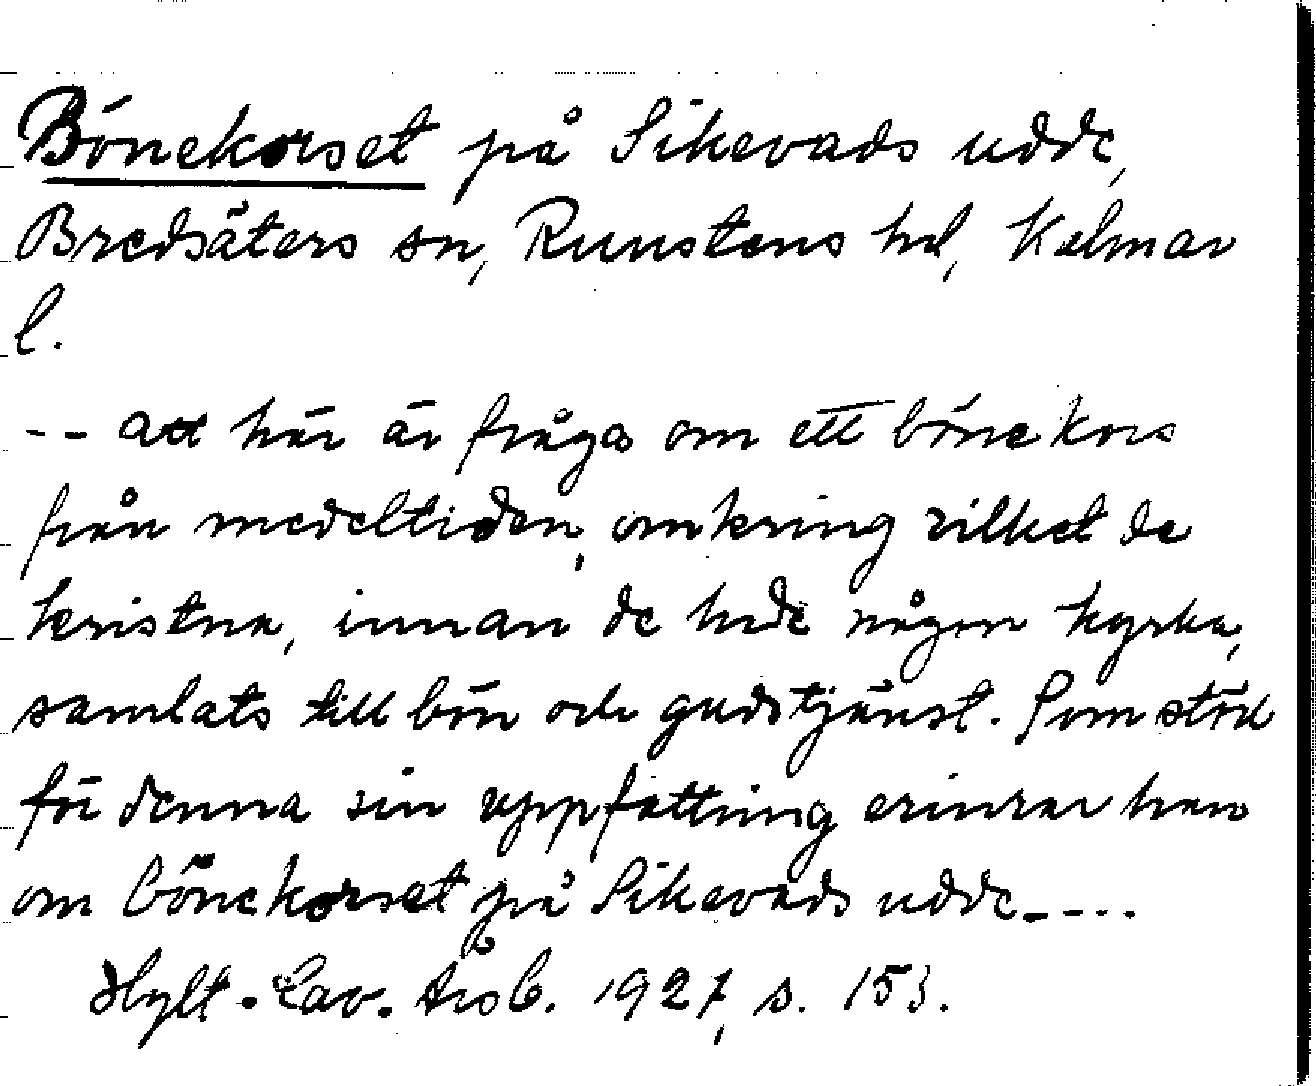 Bönekorset på Sikavads udde,
Bredsäters sn, Runstens hd, Kalmar
l.
-- att här är fråga om ett bönekors
från medeltiden, omkring vilket de
kristna, innan de hade någon kyrka,
samlats till bön och gudstjänst. Som stöd
för denna sin uppfattning erinrar han
om bönekorset på Sikavads udde_---
Hylt.-Cav. Årsb. 1927, s. 153.